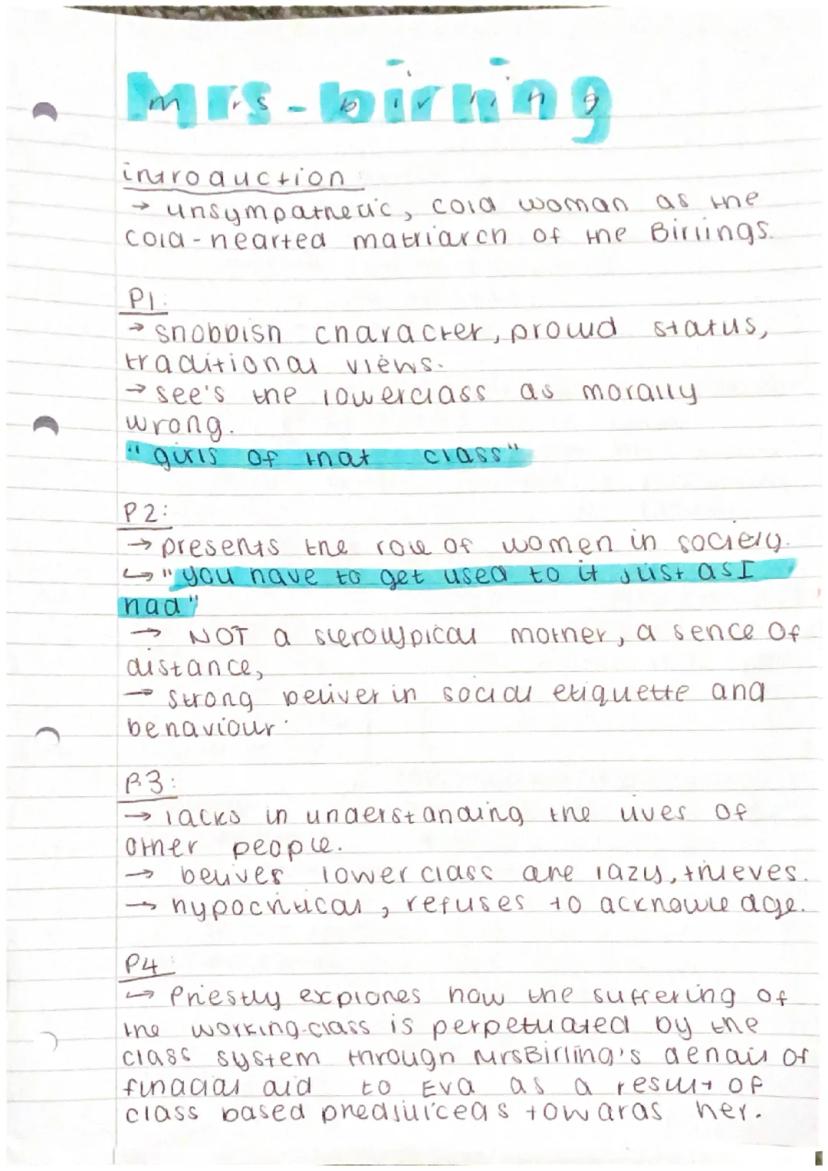 Mrs-birling
introduction:
→ unsympathetic, cold woman as the
cold-hearted matriarch of the Birlings.
P1:
→ snobbish character, proud status,
traditional views.
→ see's the lowerclass as morally
wrong.
"girls of that class"
P2:
→ presents the role of women in society.
↳ "you have to get used to it just as I
had"
→ NOT a sterotypical mother, a sence of
distance,
→ strong beliver in social etiquette and
behaviour.
P.3:
→ lacks in understanding the lives of
other people.
→ belives lower class are lazy, thieves.
→ hypocritical, refuses to acknowledge.
P4
↳ Priestly explores how the suffering of
the working-class is perpetuated by the
class system through MrsBirling's denail of
finacial aid to Eva as a result of
class based predjuiceds towards her.